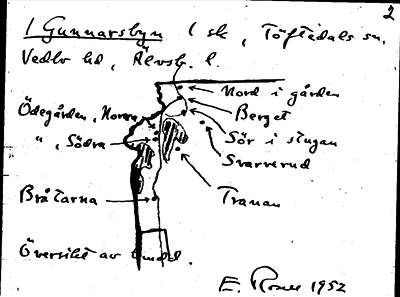 2
1 Gunnarsbyn 1 sk, Töftedals sn.
Vedbo hd, Älvsb. l.
Nord i gården
Berget
Ödegården, Norra
Sör i stugan
" , Södra
Svarverud
Bråtarna
Tranan
Översikt av
E. Rosell 1952